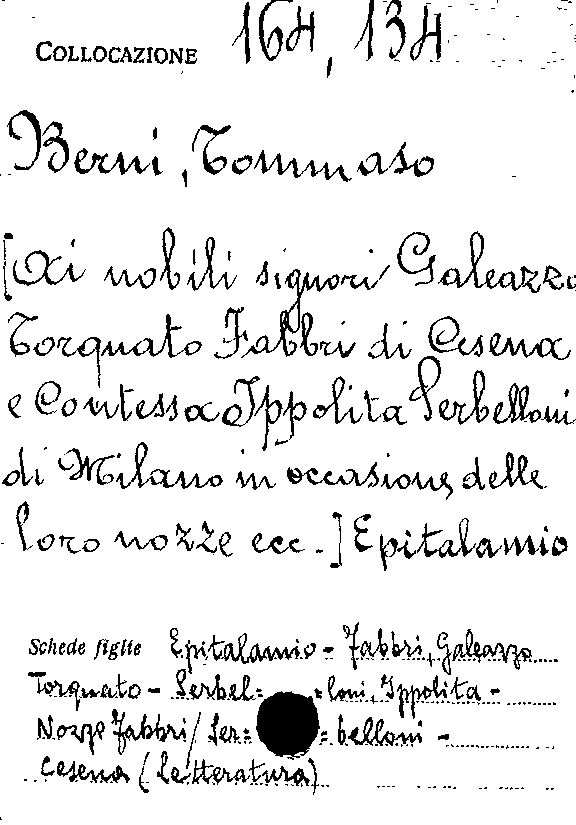 COLLOCAZIONE 164, 134
Berni, Tommaso
[Ai nobili signori Galeazzo
Torquato Fabbri di Cesena
e Contessa Ippolita Serbelloni
di Milano in occasione delle
loro nozze ecc.] Epitalamio
Schede figlie Epitalamio - Fabbri, Galeazzo
Torquato - Serbel= =loni, Ippolita -
Nozze Fabbri/Ser= =belloni -
Cesena (Letteratura)